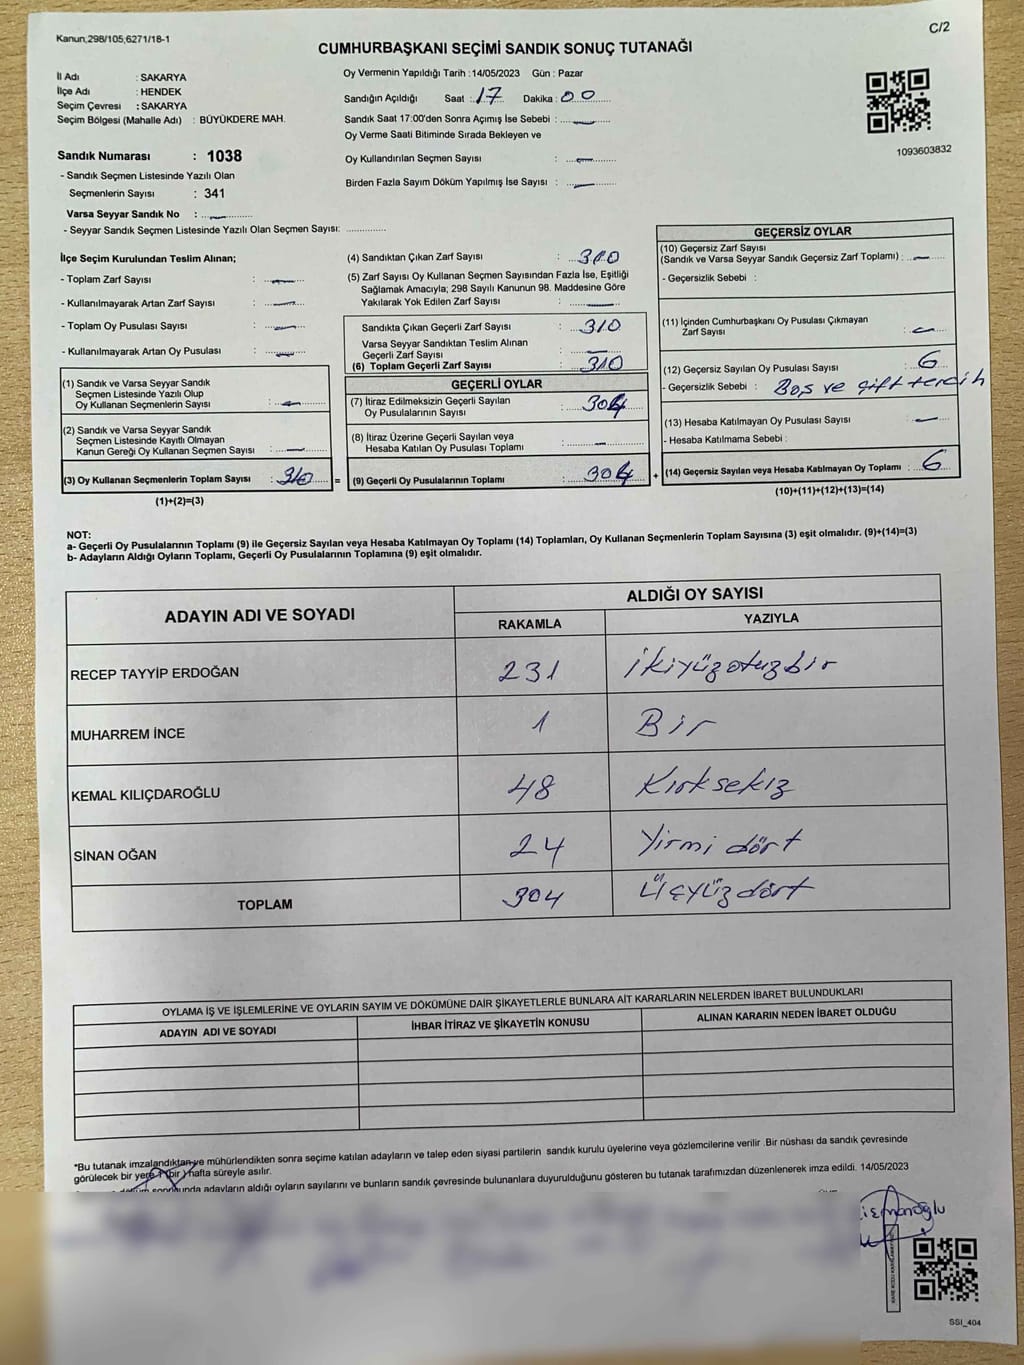 Kanun,298/105,6271/18-1
C/2
CUMHURBAŞKANI SEÇİMİ SANDIK SONUÇ TUTANAĞI
İl Adı : SAKARYA
İlçe Adı : HENDEK
Seçim Çevresi : SAKARYA
Seçim Bölgesi (Mahalle Adı) : BÜYÜKDERE MAH.
Sandık Numarası : 1038
- Sandık Seçmen Listesinde Yazılı Olan
Seçmenlerin Sayısı : 341
Varsa Seyyar Sandık No :
- Seyyar Sandık Seçmen Listesinde Yazılı Olan Seçmen Sayısı:
Oy Vermenin Yapıldığı Tarih :14/05/2023 Gün : Pazar
Sandığın Açıldığı Saat : 17 Dakika : 00
Sandık Saat 17:00'den Sonra Açımış İse Sebebi : —
Oy Verme Saati Bitiminde Sırada Bekleyen ve
Oy Kullandırılan Seçmen Sayısı : —
Birden Fazla Sayım Döküm Yapılmış İse Sayısı : —
1093603832
İlçe Seçim Kurulundan Teslim Alınan;
- Toplam Zarf Sayısı : —
- Kullanılmayarak Artan Zarf Sayısı : —
- Toplam Oy Pusulası Sayısı : —
- Kullanılmayarak Artan Oy Pusulası : —
(1) Sandık ve Varsa Seyyar Sandık
Seçmen Listesinde Yazılı Olup
Oy Kullanan Seçmenlerin Sayısı : —
(2) Sandık ve Varsa Seyyar Sandık
Seçmen Listesinde Kayıtlı Olmayan
Kanun Gereği Oy Kullanan Seçmen Sayısı : —
(3) Oy Kullanan Seçmenlerin Toplam Sayısı : 310 =
(1)+(2)=(3)
(4) Sandıktan Çıkan Zarf Sayısı : 310
(5) Zarf Sayısı Oy Kullanan Seçmen Sayısından Fazla İse, Eşitliği
Sağlamak Amacıyla; 298 Sayılı Kanunun 98. Maddesine Göre
Yakılarak Yok Edilen Zarf Sayısı : —
Sandıkta Çıkan Geçerli Zarf Sayısı : 310
Varsa Seyyar Sandıktan Teslim Alınan
Geçerli Zarf Sayısı : —
(6) Toplam Geçerli Zarf Sayısı : 310
GEÇERLİ OYLAR
(7) İtiraz Edilmeksizin Geçerli Sayılan
Oy Pusulalarının Sayısı : 304
(8) İtiraz Üzerine Geçerli Sayılan veya
Hesaba Katılan Oy Pusulası Toplamı : —
(9) Geçerli Oy Pusulalarının Toplamı : 304 +
GEÇERSİZ OYLAR
(10) Geçersiz Zarf Sayısı
(Sandık ve Varsa Seyyar Sandık Geçersiz Zarf Toplamı) : —
- Geçersizlik Sebebi :
(11) İçinden Cumhurbaşkanı Oy Pusulası Çıkmayan
Zarf Sayısı : —
(12) Geçersiz Sayılan Oy Pusulası Sayısı : 6
- Geçersizlik Sebebi : Boş ve çift tercih
(13) Hesaba Katılmayan Oy Pusulası Sayısı : —
- Hesaba Katılmama Sebebi :
(14) Geçersiz Sayılan veya Hesaba Katılmayan Oy Toplamı : 6
(10)+(11)+(12)+(13)=(14)
NOT:
a- Geçerli Oy Pusulalarının Toplamı (9) ile Geçersiz Sayılan veya Hesaba Katılmayan Oy Toplamı (14) Toplamları, Oy Kullanan Seçmenlerin Toplam Sayısına (3) eşit olmalıdır. (9)+(14)=(3)
b- Adayların Aldığı Oyların Toplamı, Geçerli Oy Pusulalarının Toplamına (9) eşit olmalıdır.
ADAYIN ADI VE SOYADI ALDIĞI OY SAYISI
RAKAMLA YAZIYLA
RECEP TAYYİP ERDOĞAN 231 ikiyüzotuzbir
MUHARREM İNCE 1 Bir
KEMAL KILIÇDAROĞLU 48 Kırksekiz
SİNAN OĞAN 24 Yirmi dört
TOPLAM 304 Üçyüzdört
OYLAMA İŞ VE İŞLEMLERİNE VE OYLARIN SAYIM VE DÖKÜMÜNE DAİR ŞİKAYETLERLE BUNLARA AİT KARARLARIN NELERDEN İBARET BULUNDUKLARI
ADAYIN ADI VE SOYADI İHBAR İTİRAZ VE ŞİKAYETİN KONUSU ALINAN KARARIN NEDEN İBARET OLDUĞU
*Bu tutanak imzalandıktan ve mühürlendikten sonra seçime katılan adayların ve talep eden siyasi partilerin sandık kurulu üyelerine veya gözlemcilerine verilir .Bir nüshası da sandık çevresinde
görülecek bir yere 1 (bir ) hafta süreyle asılır.
sonunda adayların aldığı oyların sayılarını ve bunların sandık çevresinde bulunanlara duyurulduğunu gösteren bu tutanak tarafımızdan düzenlenerek imza edildi. 14/05/2023
SSI_404